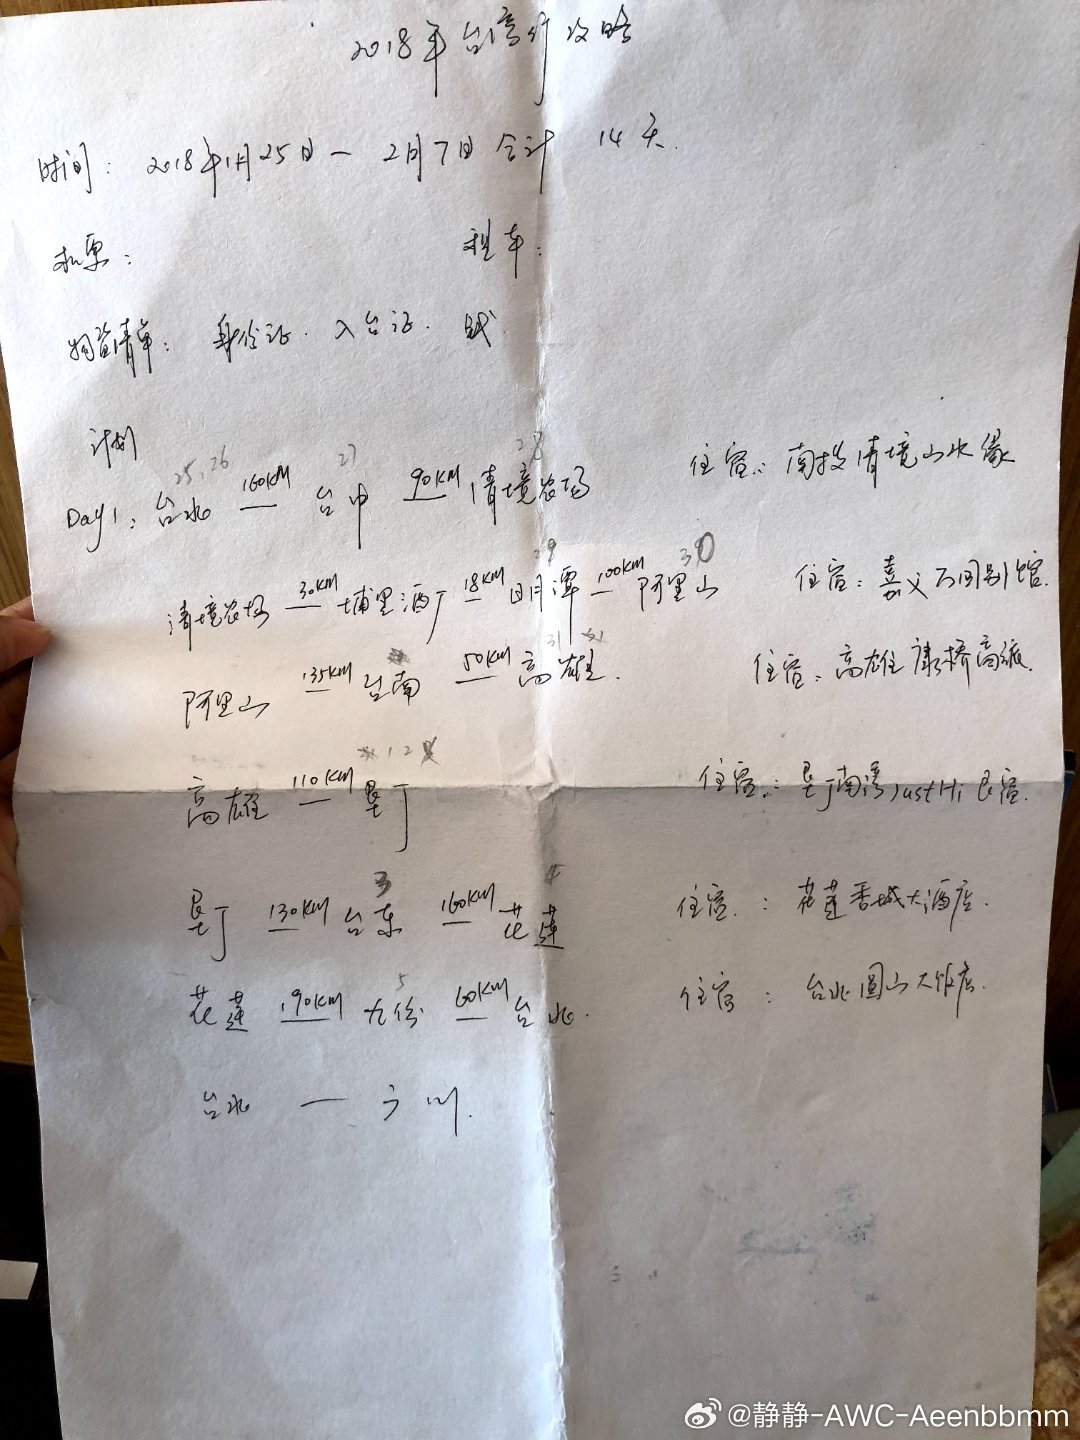 2018年台湾行攻略
时间: 2018年1月25日 — 2月7日 合计 14天.
机票: 租车:
物资清单: 身份证. 入台证. 钱.
计划
25. 26 27 28
Day1: 台北 160KM 台中 90KM 清境农场 住宿: 南投清境山水缘
29 30
清境农场 30KM 埔里酒厂 18KM 日月潭 100KM 阿里山 住宿: 嘉义 别馆.
31
阿里山 135KM 台南 50KM 高雄. 住宿: 高雄康桥商旅.
1 2
高雄 110KM 垦丁 住宿: 垦丁南湾Just Hi 民宿.
3 4
垦丁 130KM 台东 160KM 花莲 住宿: 花莲香城大酒店.
5
花莲 190KM 九份 60KM 台北. 住宿: 台北圆山大饭店.
台北 — 广州.
@静静-AWC-Aeenbbmm